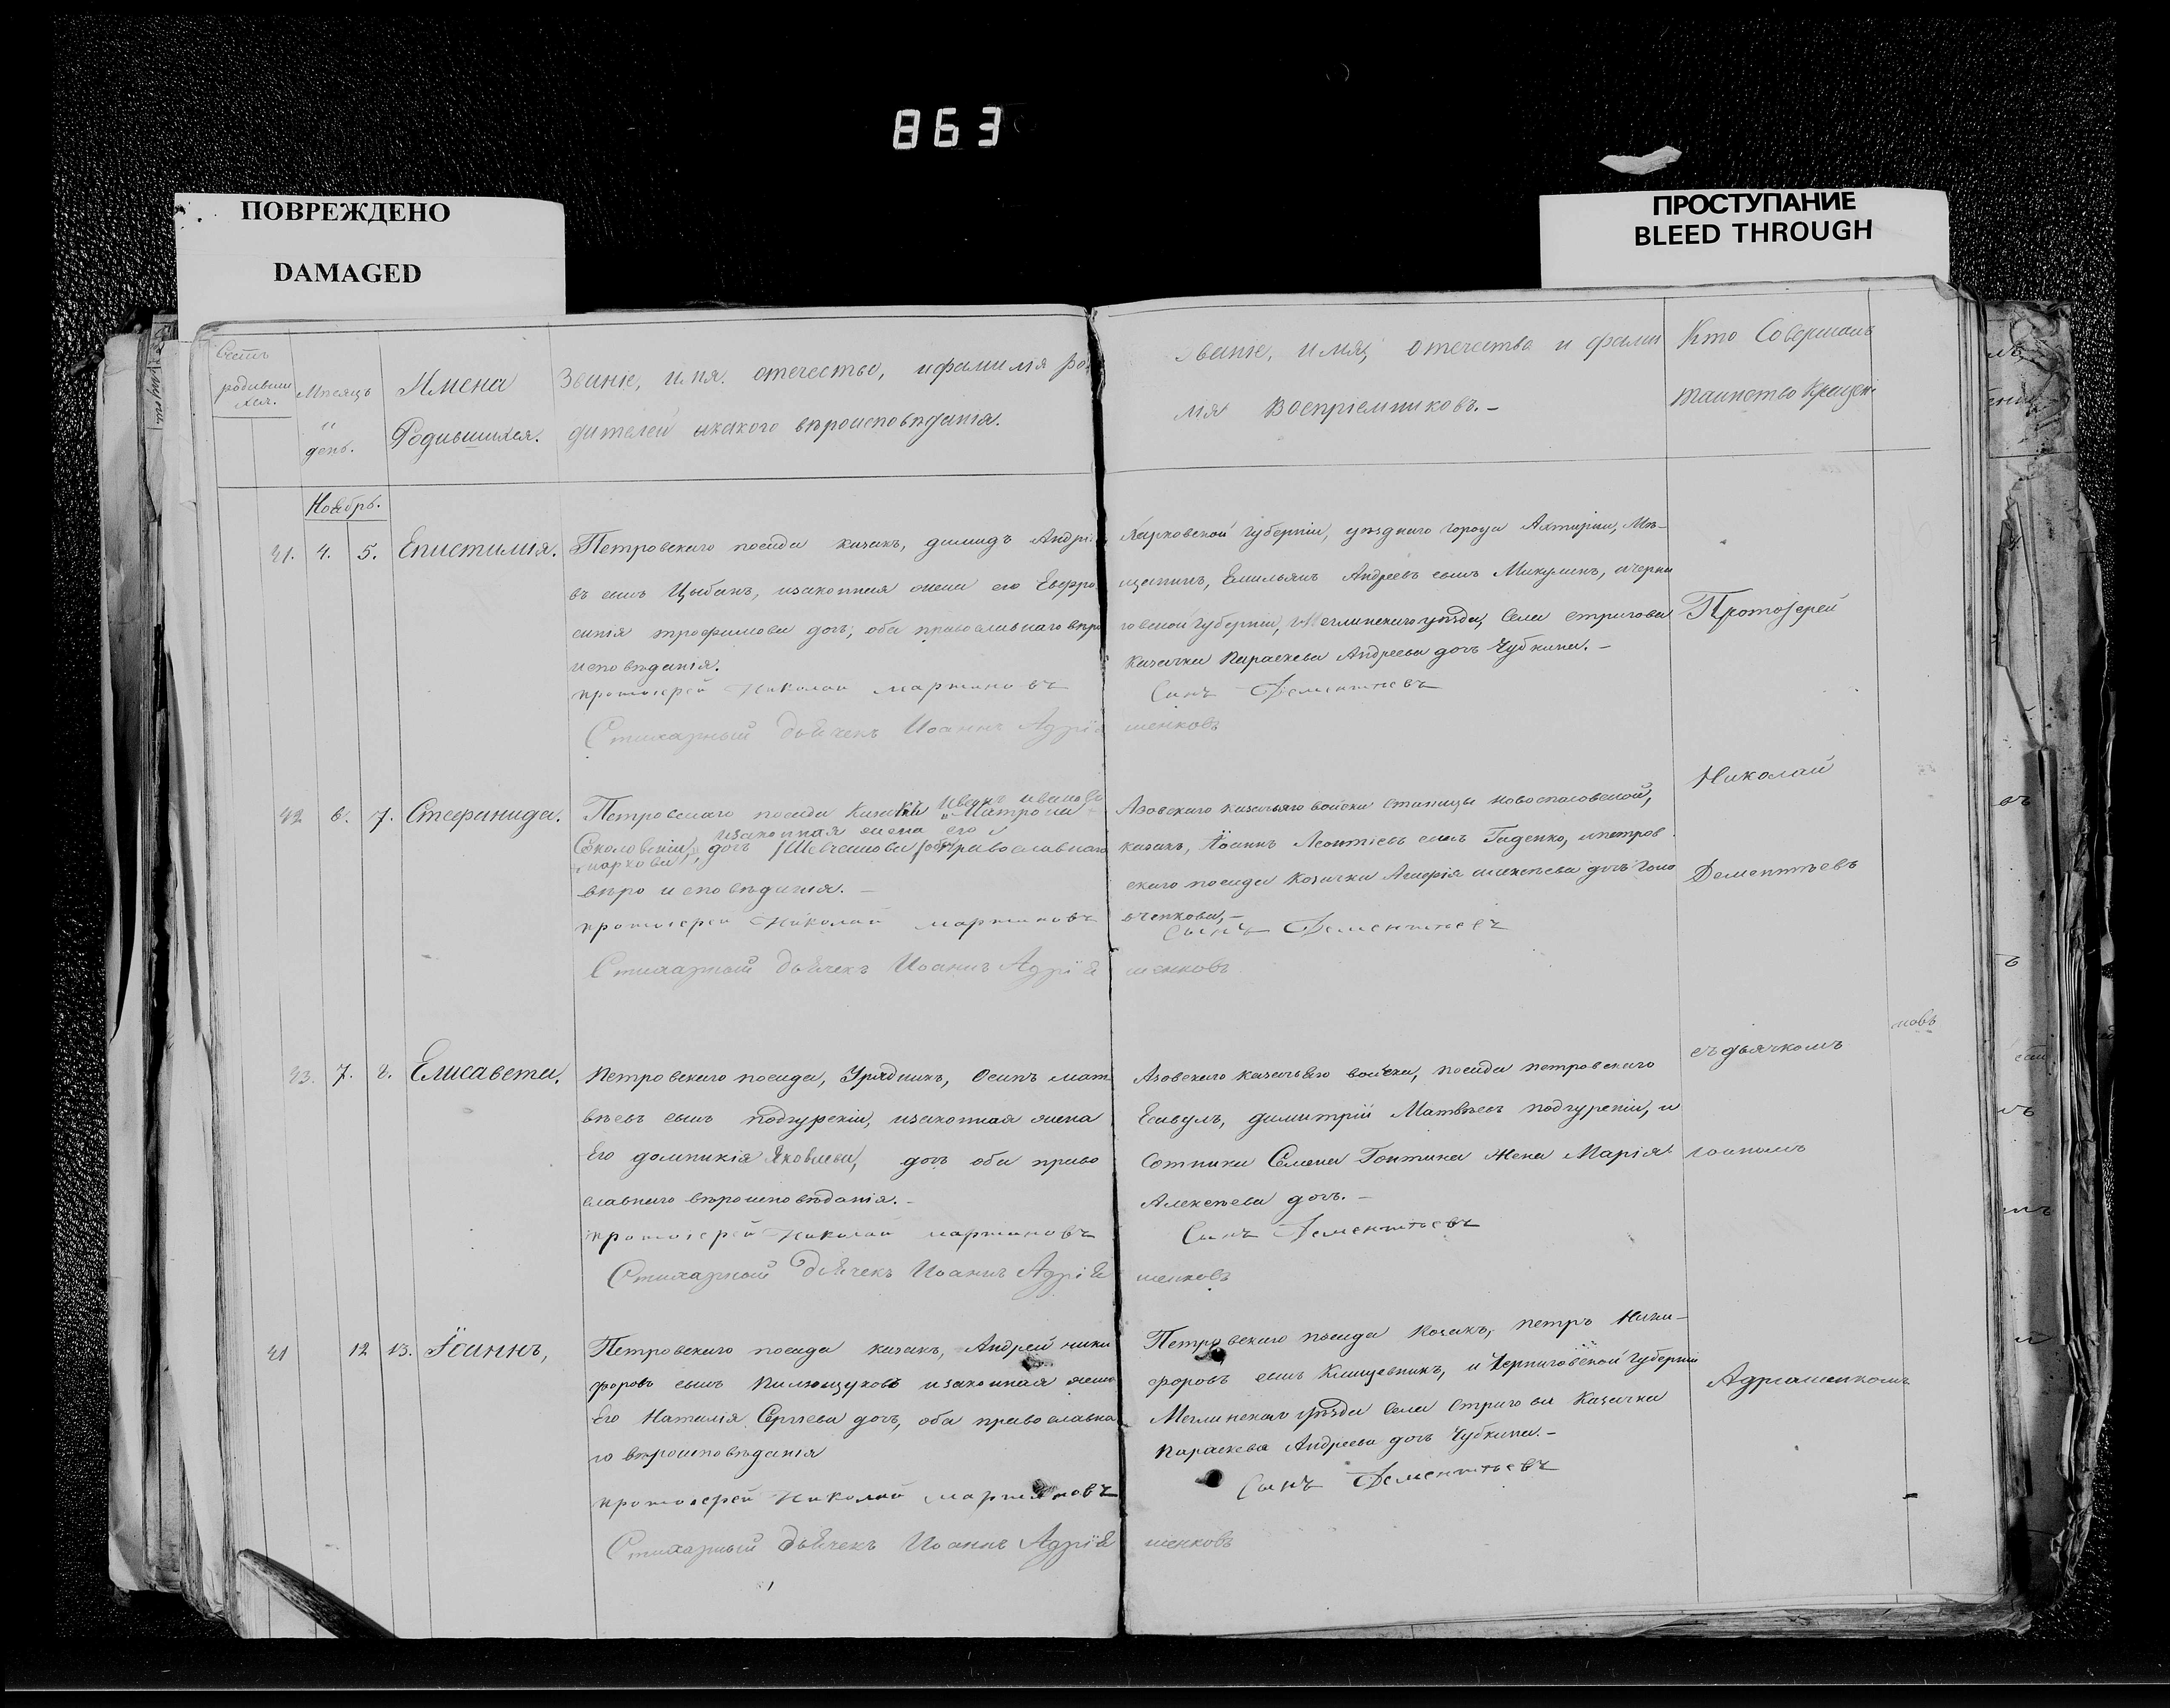 863
ПОВРЕЖДЕНО
DAMAGED
ПРОСТУПАНИЕ
BLEED THROUGH
родивши
хся.
Мѣсяцъ
и
день.
Имена
Родившихся.
Званіе, имя. отечество, и фамилія ро
дителей и какого вѣроисповѣданія.
Званіе, имя, отечество и фами
лія Воспріемниковъ.-
Кто Совершалъ
таинство Крещен.
Ноябрь.
41. 4. 5. Епистимія.
Петровскаго посада казакъ, димидъ Андрі
въ сынъ Цыбань, изаконная жена его Евфро
синія трофимова дочь, оба православнаго вѣро
исповѣданія.
протоіерей Николай мартиновъ
Стихарный дьячекъ Иоаннъ Адрія
Харковской губерніи, уѣзднаго города Ахтирки, Мѣ-
щанинъ, Емильянъ Андреевъ сынъ Микулинъ, ичерни
говской губерніи, Мглинскаго уѣзда, Села стригова
казачка Параскева Андреева дочь Чубкина.-
Сынъ Дементьевъ
шенковъ
Протоіерей
Николай
Дементьевъ
съ дьячкомъ
Іоаномъ
Адріашенкомъ
42 6. 7. Стефанида.
Петровскаго посада Казакъ Иванъ ивановъ
Матрона
изаконная жена его
дочь православнаго
маркова
вѣро исповѣданія.-
протоіерей Николай мартиновъ
Стихарный дьячекъ Иоаннъ Адрія
Азовскаго казачьяго войска станицы новоспасовской,
казакъ, Іоаннъ Леонтіевъ сынъ Гиденко, ипетров
скаго посада Козачка Агафія алексѣева дочь
Сынъ Дементьевъ
шенковъ
43. 7. Елисавета.
Петровскаго посада, Урядникъ, Осипъ мат
вѣевъ сынъ подгурскій, изаконная жена
Его домникія Яковлева, дочь оба право
славнаго вѣроисповѣданія.-
протоіерей Николай мартиновъ
Стихарный дьячекъ Иоаннъ Адрія
Азовскаго казачьяго войска, посада петровскаго
Есавулъ, димитрій Матвѣевъ подгурскій, и
Сотника Семена Гонтина Жена Марія
Алексѣева дочь.-
Сынъ Дементьевъ
шенковъ
новъ
12 13. Іоаннъ,
Петровскаго посада казакъ, Андрей ники
форовъ сынъ изаконная жена
Его Наталія Сергіева дочь, оба православна
го вѣроисповѣданія
протоіерей Николай мартиновъ
Стихарный дьячекъ Иоаннъ Адрія
Петровскаго посада Козакъ, петръ Ники-
форовъ сынъ Клищевникъ, и Черниговской губерніи
Мглинскаго уѣзда Села Стригова Казачка
Параскева Андреева дочь Чубкина.-
Сынъ Дементьевъ
шенковъ